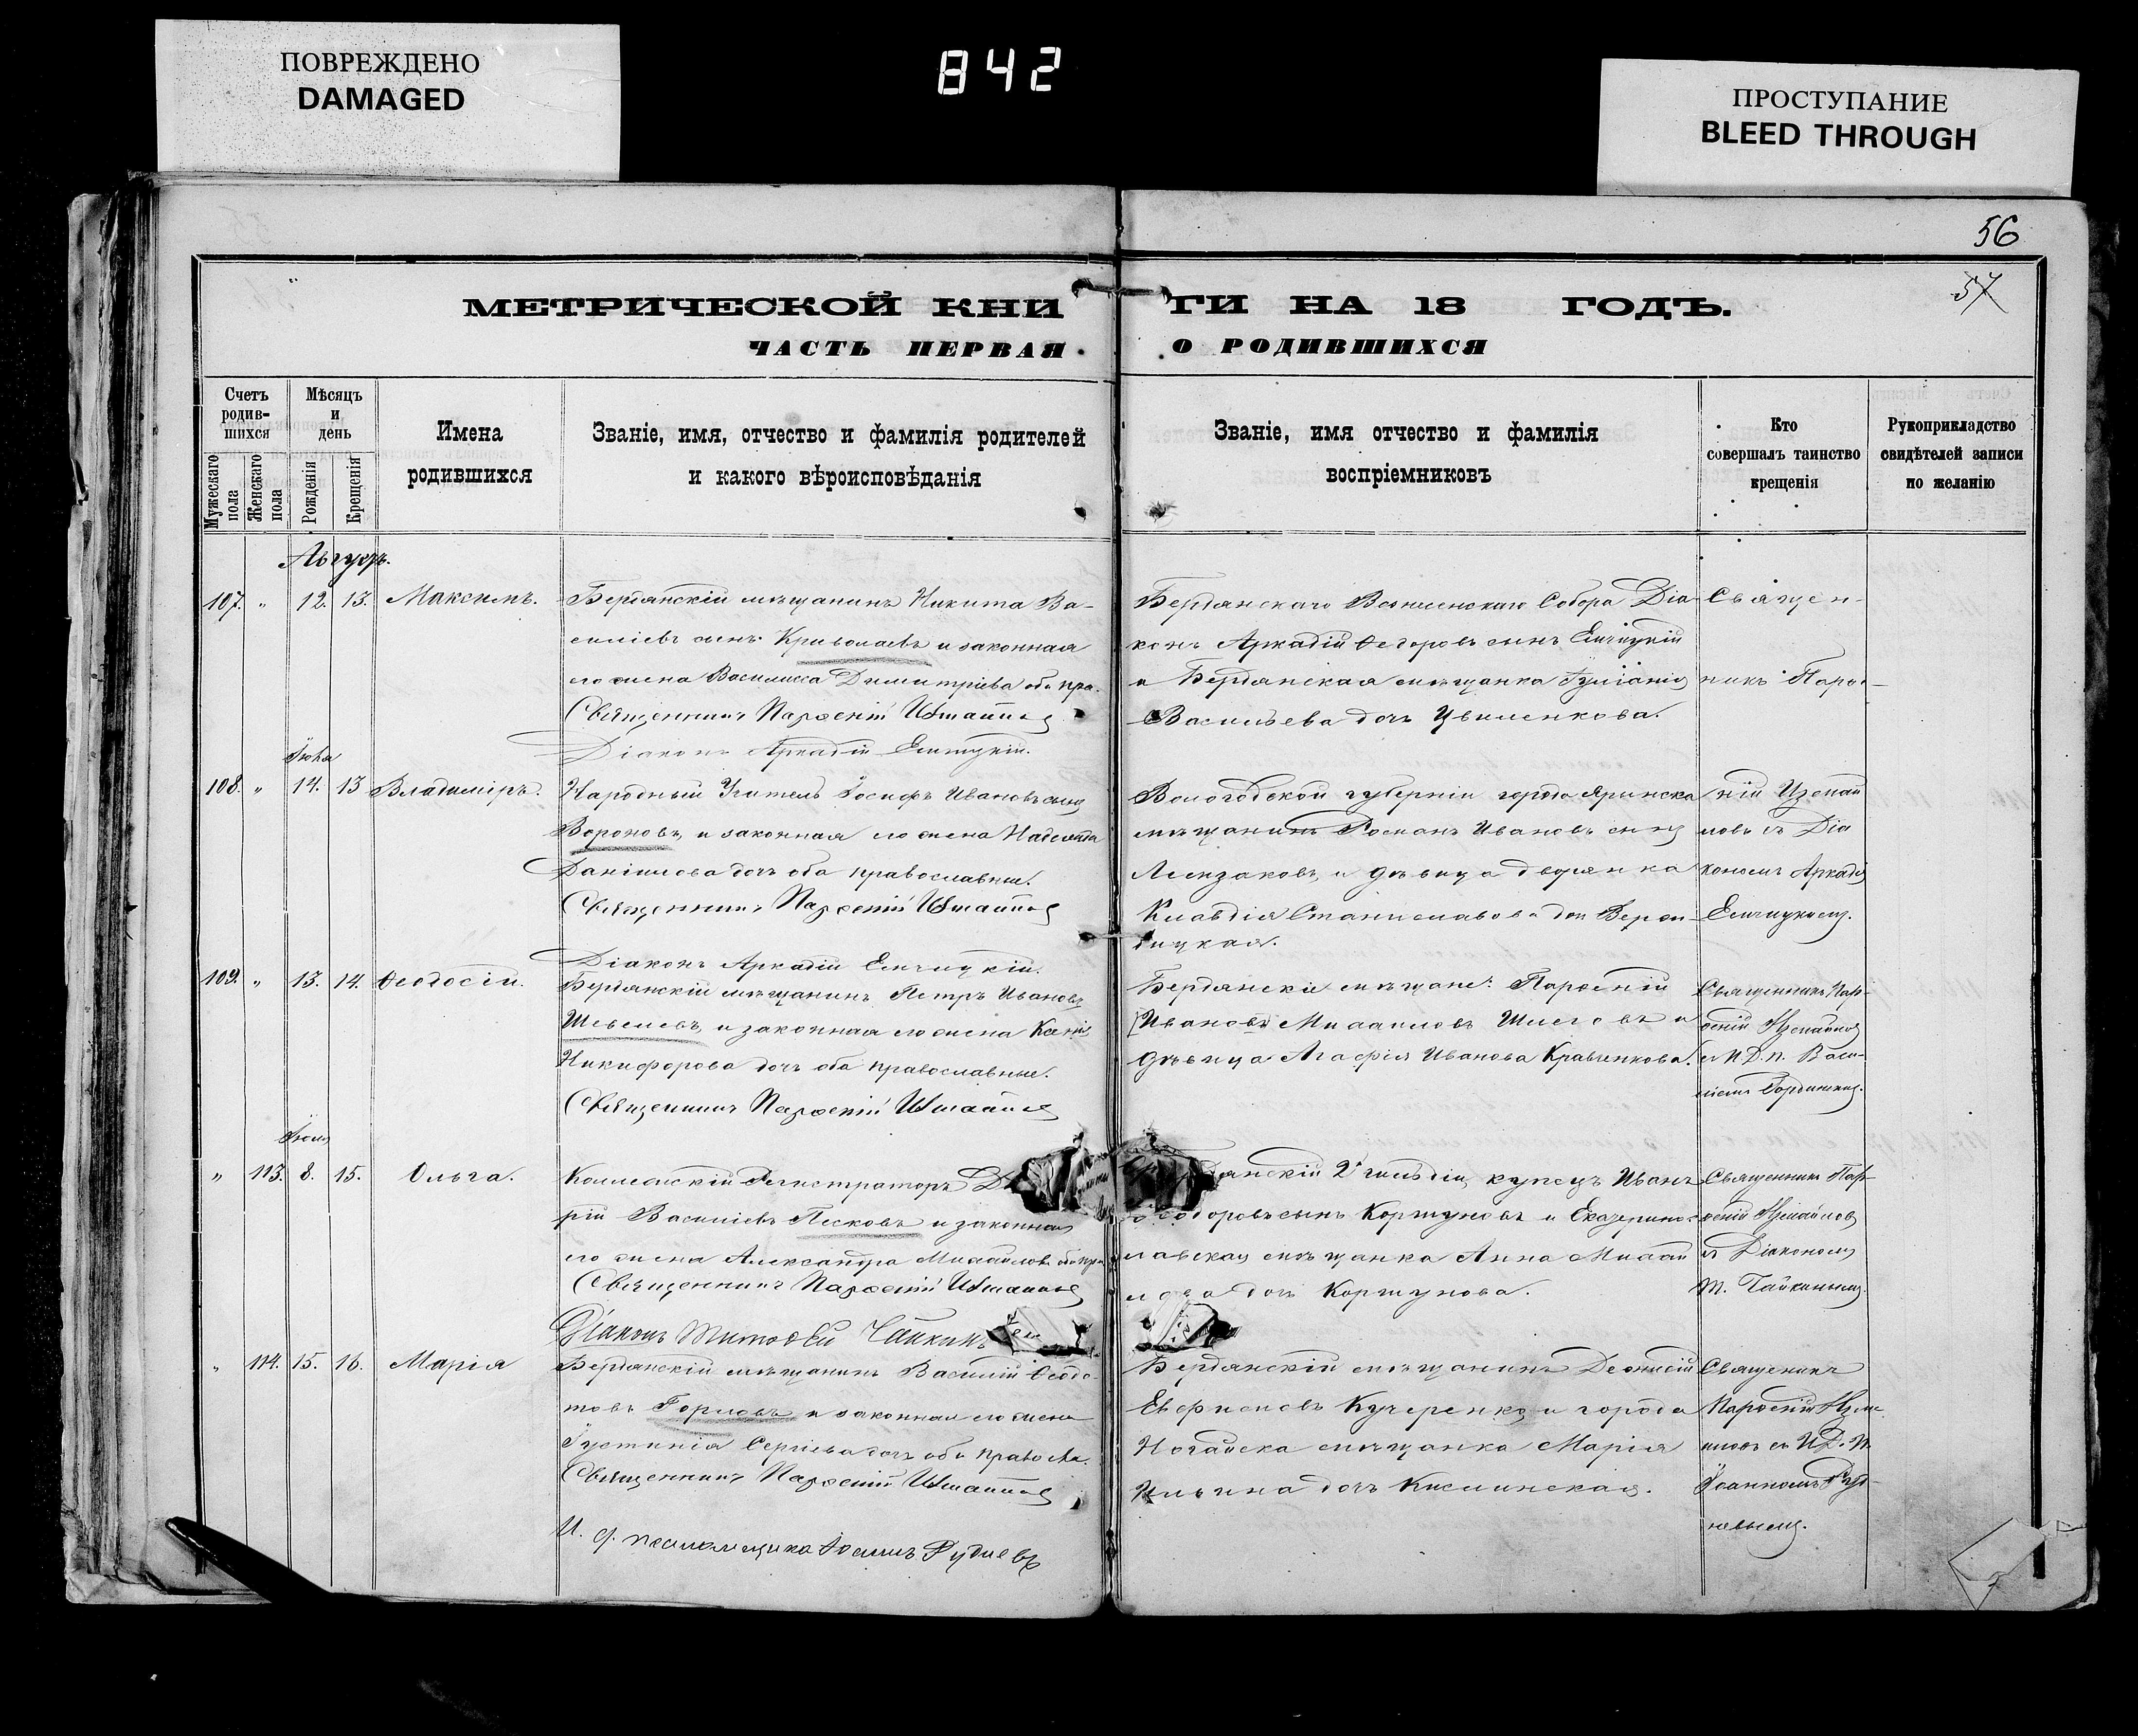 ПОВРЕЖДЕНО
DAMAGED
842
ПРОСТУПАНИЕ
BLEED THROUGH
56
57
МЕТРИЧЕСКОЙ КНИ ГИ НА 18 ГОДЪ.
ЧАСТЬ ПЕРВАЯ. О РОДИВШИХСЯ
Счетъ родив-шихся
Мужескаго пола
Женскаго пола
Мѣсяцъ и день
Рожденія
Крещенія
Имена родившихся
Званіе, имя, отчество и фамилія родителей
и какого вѣроисповѣданія
Званіе, имя отчество и фамилія
воспріемниковъ
Кто
совершалъ таинство
крещенія
Рукоприкладство
свидѣтелей записи
по желанію
Августъ.
107. " 12. 13. Максимъ.
Бердянскій мѣщанинъ Никита Ва-
силіевъ сынъ и законная
его жена Василисса Димитріева оба пра.
Священникъ Парѳеній Измайловъ
Діаконъ Аркадій
Бердянскаго Вознесенскаго Собора Діа-
конъ Аркадій Ѳедоровъ сынъ
и Бердянская мѣщанка Іуліанія
Васильева дочь Цвиленкова.
Священ-
никъ Парѳе-
108. " 14. 13 Владиміръ.
Народный Учитель Іосифъ Ивановъ сынъ
Вороновъ, и законная его жена Надежда
Даніилова дочь оба православные.
Священникъ Парѳеній Измайловъ
Діаконъ Аркадій
Вологодской губерніи города Яринска
мѣщанинъ Романъ Ивановъ сынъ
и дѣвица дворянка
Клавдія Станиславова доч
ній Измай
ловъ съ Діа
кономъ Аркадіе
109. " 13. 14. Ѳеодосій.
Бердянскій мѣщанинъ Петръ Ивановъ
Шевелевъ, и законная его жена
Никифорова дочь оба православные.
Священникъ Парѳеній Измайловъ
Бердянскіе мѣщане: Парѳеній
Ивановъ и
дѣвица Агафія Иванова Кравченкова.
Священникъ Парѳ-
ѳеній Измайловъ
съ И.Д.п. Васи-
ліемъ
Іюля
" 113. 8. 15. Ольга.
Коллежскій Регистраторъ
рій Василіевъ Песковъ и законная
его жена Александра Михайлова оба пра
Священникъ Парѳеній Измайловъ
Діаконъ Тимоѳей Чайкинъ
янскій 2й гильдіи, купецъ Иванъ
Ѳеодоровъ сынъ Коршуновъ и Екатерино-
славская мѣщанка Анна Михай
лова дочь Коршунова.
Священникъ Пар-
ѳеній Измайловъ
съ Діакономъ
Т. Чайкинымъ.
" 114. 15. 16. Марія
Бердянскій мѣщанинъ Василій Ѳеодо-
товъ Горловъ и законная его жена
Іустинія Сергіева дочь оба правосла.
Священникъ Парѳеній Измайловъ
И. д. псаломщика Іоаннъ Рудневъ
Бердянскій мѣщанинъ Деонисій
Кучеренко, и города
Ногайска мѣщанка Марія
Ильина дочь
Священникъ
Парѳеній Изм
иловъ съ И.Д. п.
Іоанномъ Руд-
невымъ.